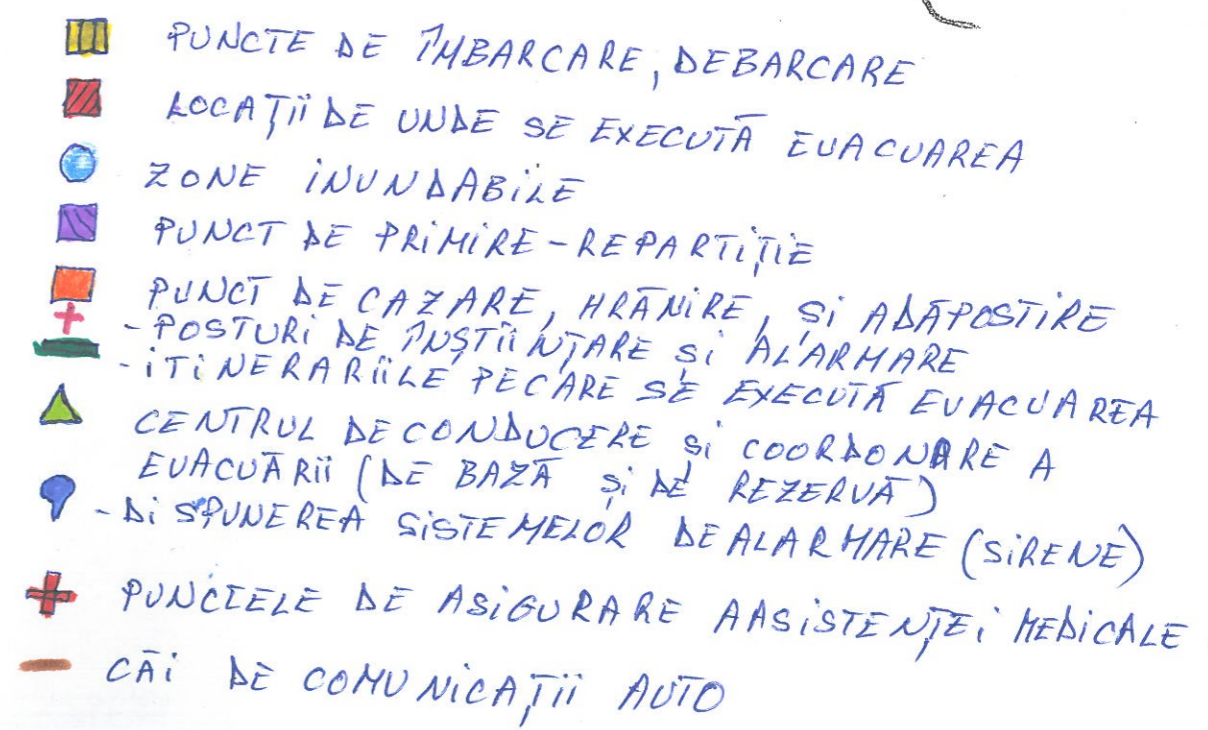 PUNCTE DE ÎMBARCARE, DEBARCARE
LOCAȚII DE UNDE SE EXECUTĂ EVACUAREA
ZONE INUNDABILE
PUNCT DE PRIMIRE-REPARTIȚIE
PUNCT DE CAZARE, HRĂNIRE, ȘI ADĂPOSTIRE
- POSTURI DE ÎNȘTIINȚARE ȘI ALARMARE
- ITINERARIILE PE CARE SE EXECUTĂ EVACUAREA
CENTRUL DE CONDUCERE ȘI COORDONARE A
EVACUĂRII (DE BAZĂ ȘI DE REZERVĂ)
- DISPUNEREA SISTEMELOR DE ALARMARE (SIRENE)
PUNCTELE DE ASIGURARE A ASISTENȚEI MEDICALE
CĂI DE COMUNICAȚII AUTO